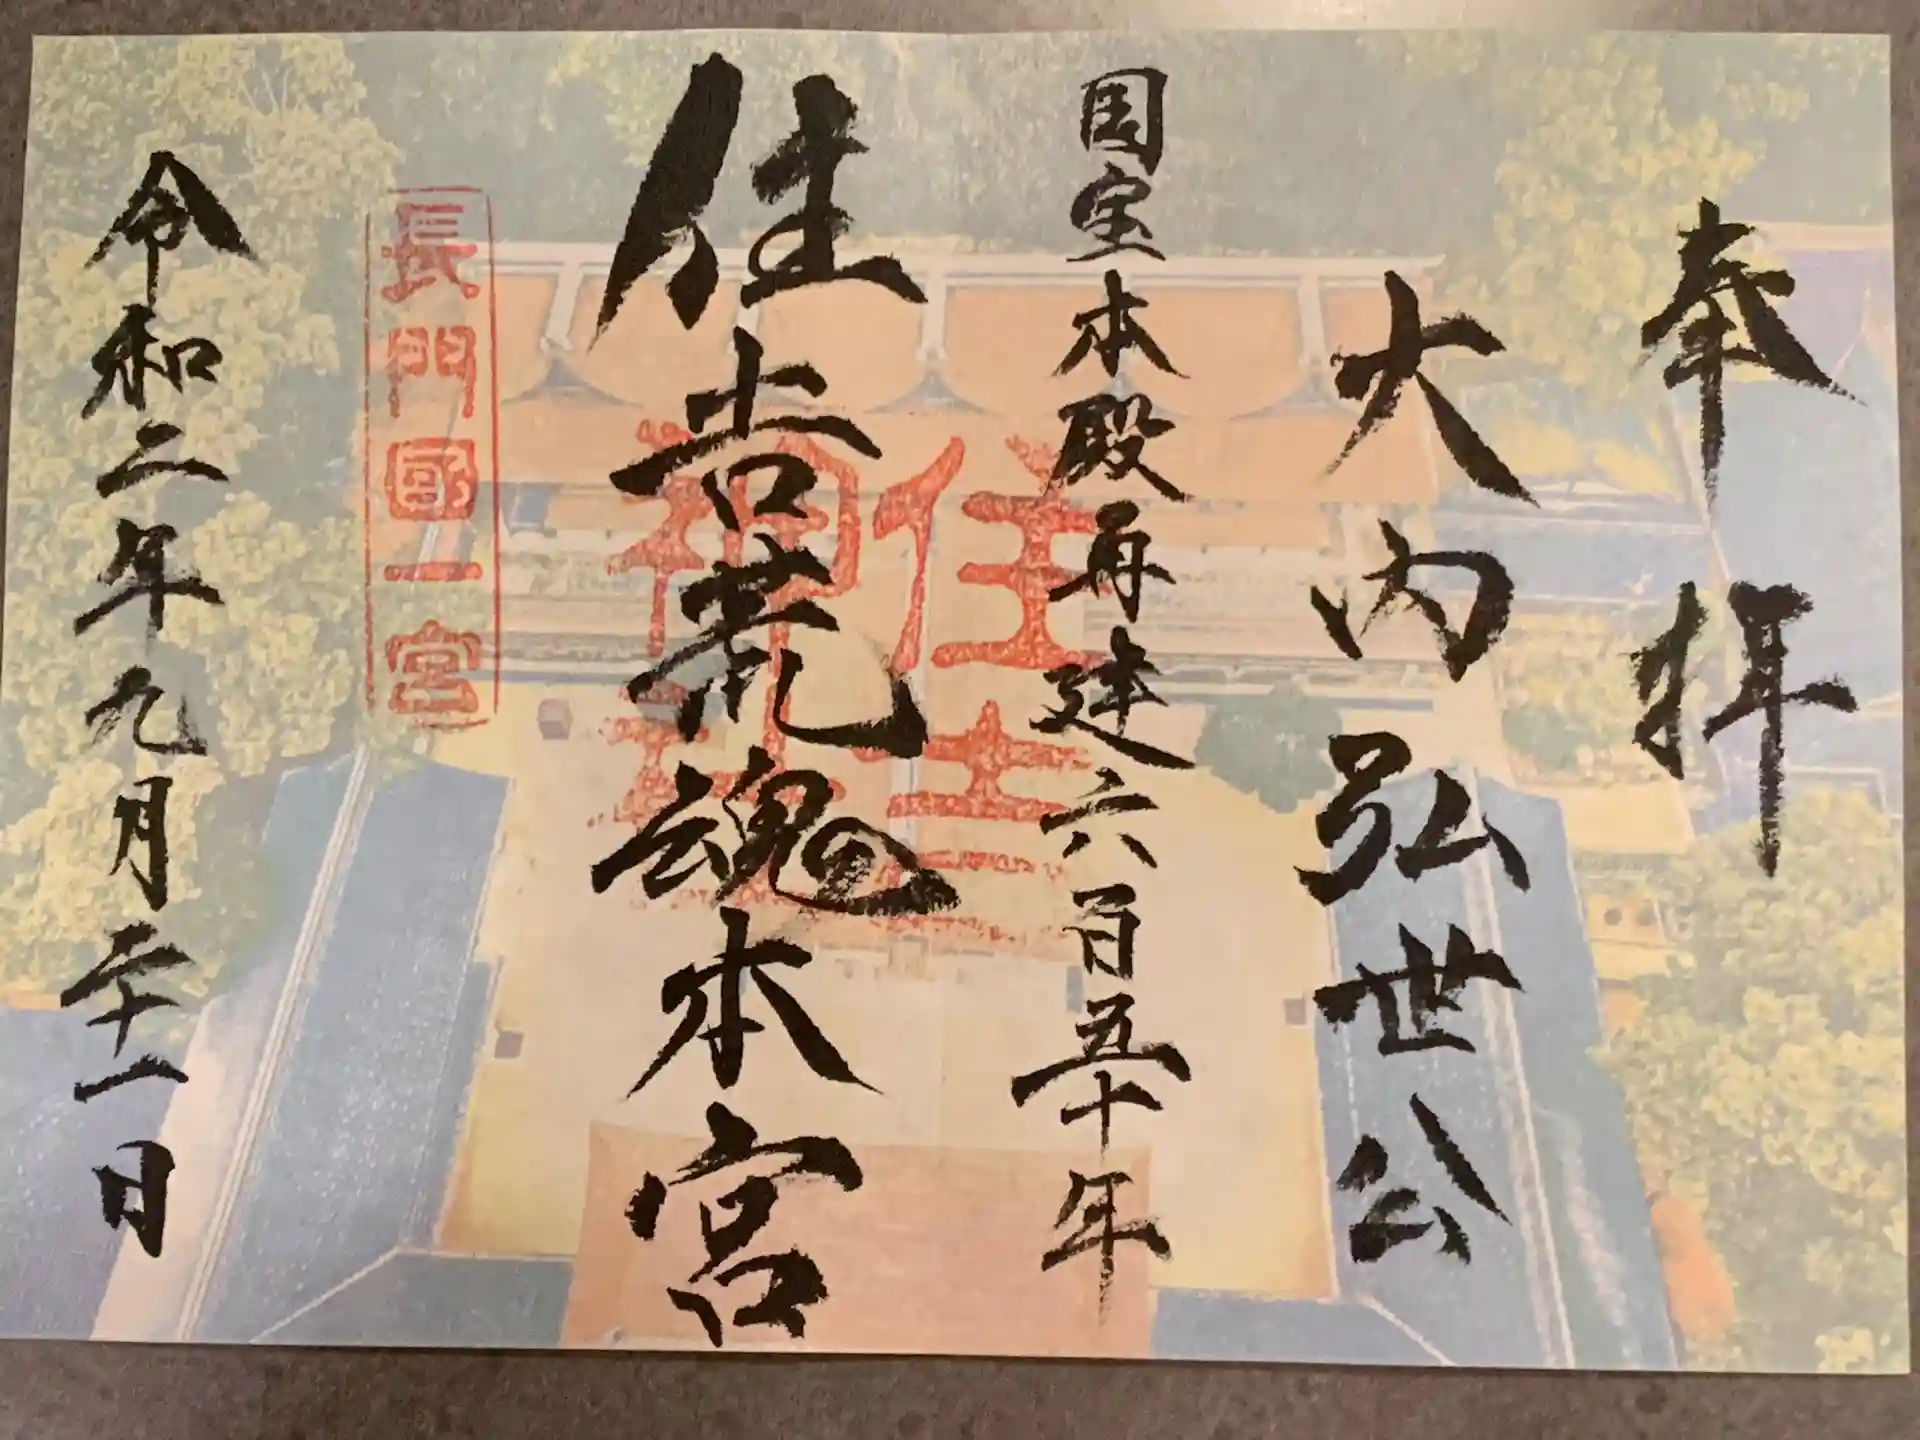 奉拝
大内弘世公
国宝本殿再建六百五十年
住吉荒魂本宮
住吉
神社
長門國一宮
令和二年九月二十一日